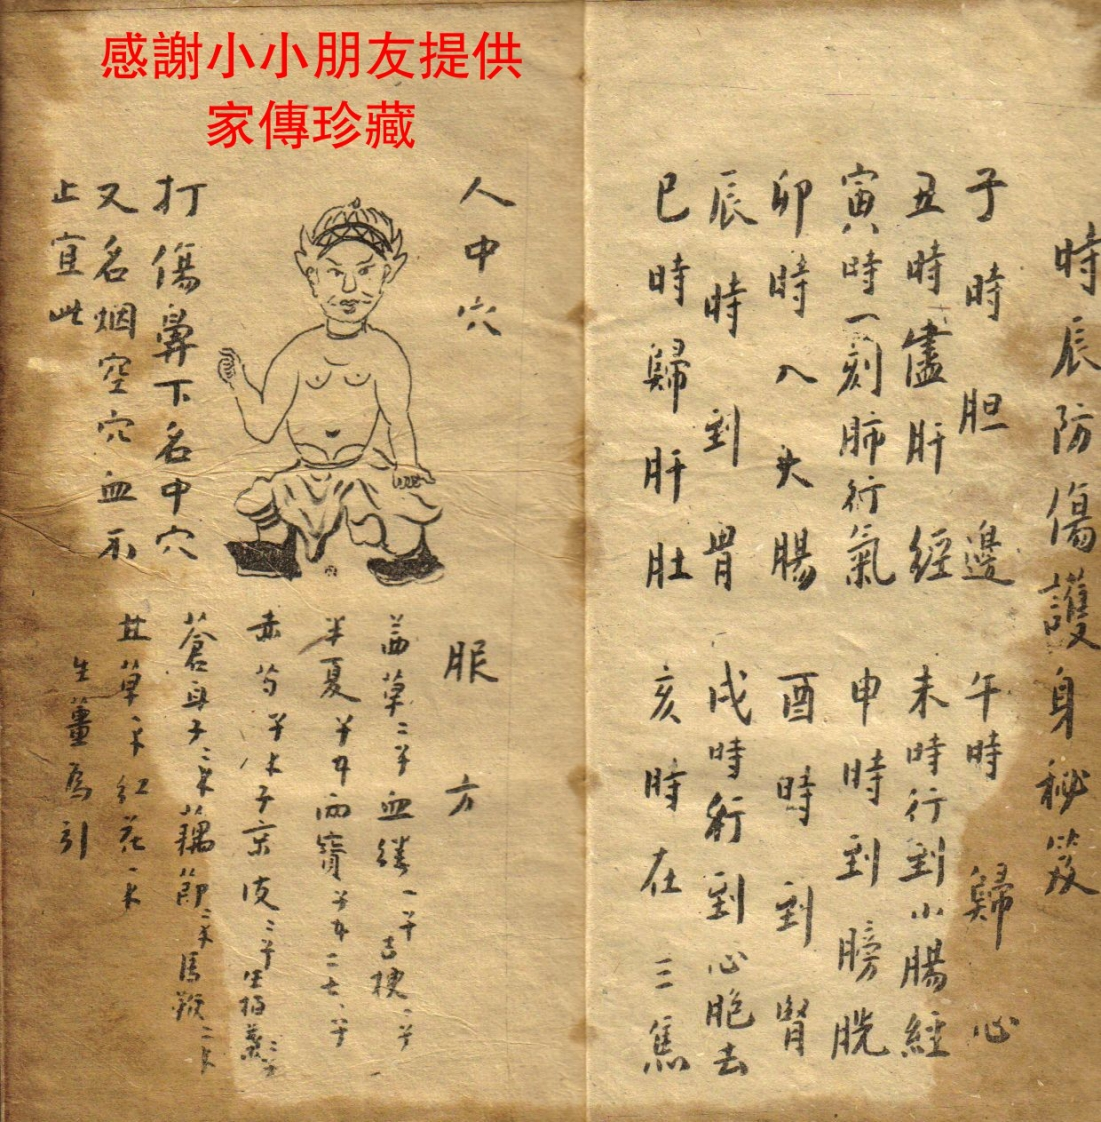 感謝小小朋友提供
家傳珍藏
時辰防傷護身秘笈
子時胆邊 午時歸心
丑時儘肝經 未時行到小腸經
寅時一刻肺行氣 申時到膀胱
卯時入大腸 酉時到腎
辰時到胃 戌時行到心胞去
巳時歸肝肚 亥時在三焦
人中穴
打傷鼻下名中穴
又名烟空穴血不
止宜此
服方
草二 血 一 桔梗一
半夏 五 二七
赤芍 子京皮二 生 
蒼耳子三 藕節三 二
甘草 紅花一
生薑為引